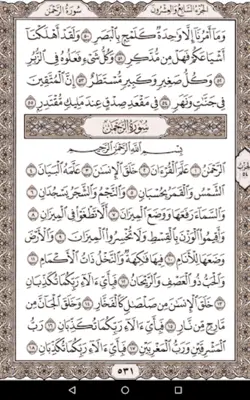 سورة الرحمن الجزء السابع والعشرون
وَمَا أَمْرُنَا إِلَّا وَٰحِدَةٌ كَلَمْحٍۭ بِٱلْبَصَرِ ٥٠ وَلَقَدْ أَهْلَكْنَآ
أَشْيَاعَكُمْ فَهَلْ مِن مُّدَّكِرٍ ٥١ وَكُلُّ شَىْءٍ فَعَلُوهُ فِى ٱلزُّبُرِ
٥٢ وَكُلُّ صَغِيرٍ وَكَبِيرٍ مُّسْتَطَرٌ ٥٣ إِنَّ ٱلْمُتَّقِينَ
فِى جَنَّٰتٍ وَنَهَرٍ ٥٤ فِى مَقْعَدِ صِدْقٍ عِندَ مَلِيكٍ مُّقْتَدِرٍۭ ٥٥
سُورَةُ الرَّحْمَٰن
بِسْمِ ٱللَّهِ ٱلرَّحْمَٰنِ ٱلرَّحِيمِ
ٱلرَّحْمَٰنُ ١ عَلَّمَ ٱلْقُرْءَانَ ٢ خَلَقَ ٱلْإِنسَٰنَ ٣ عَلَّمَهُ ٱلْبَيَانَ ٤
ٱلشَّمْسُ وَٱلْقَمَرُ بِحُسْبَانٍ ٥ وَٱلنَّجْمُ وَٱلشَّجَرُ يَسْجُدَانِ ٦
وَٱلسَّمَآءَ رَفَعَهَا وَوَضَعَ ٱلْمِيزَانَ ٧ أَلَّا تَطْغَوْا۟ فِى ٱلْمِيزَانِ ٨
وَأَقِيمُوا۟ ٱلْوَزْنَ بِٱلْقِسْطِ وَلَا تُخْسِرُوا۟ ٱلْمِيزَانَ ٩ وَٱلْأَرْضَ
وَضَعَهَا لِلْأَنَامِ ١٠ فِيهَا فَٰكِهَةٌ وَٱلنَّخْلُ ذَاتُ ٱلْأَكْمَامِ ١١
وَٱلْحَبُّ ذُو ٱلْعَصْفِ وَٱلرَّيْحَانُ ١٢ فَبِأَىِّ ءَالَآءِ رَبِّكُمَا تُكَذِّبَانِ
١٣ خَلَقَ ٱلْإِنسَٰنَ مِن صَلْصَٰلٍ كَٱلْفَخَّارِ ١٤ وَخَلَقَ ٱلْجَآنَّ مِن
مَّارِجٍ مِّن نَّارٍ ١٥ فَبِأَىِّ ءَالَآءِ رَبِّكُمَا تُكَذِّبَانِ ١٦ رَبُّ
ٱلْمَشْرِقَيْنِ وَرَبُّ ٱلْمَغْرِبَيْنِ ١٧ فَبِأَىِّ ءَالَآءِ رَبِّكُمَا تُكَذِّبَانِ ١٨
٥٣١